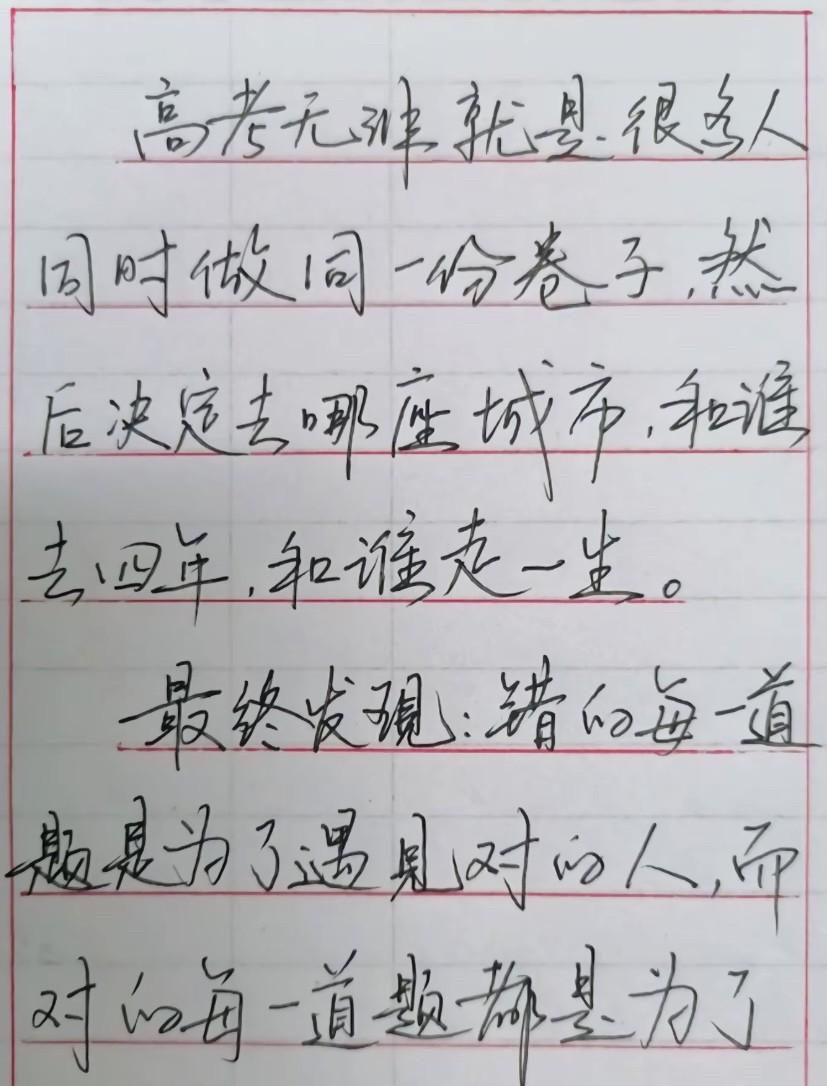 高考无非就是很多人
同时做同一份卷子,然
后决定去哪座城市,和谁
去四年,和谁走一生。
最终发现:错的每一道
题是为了遇见对的人,而
对的每一道题都是为了